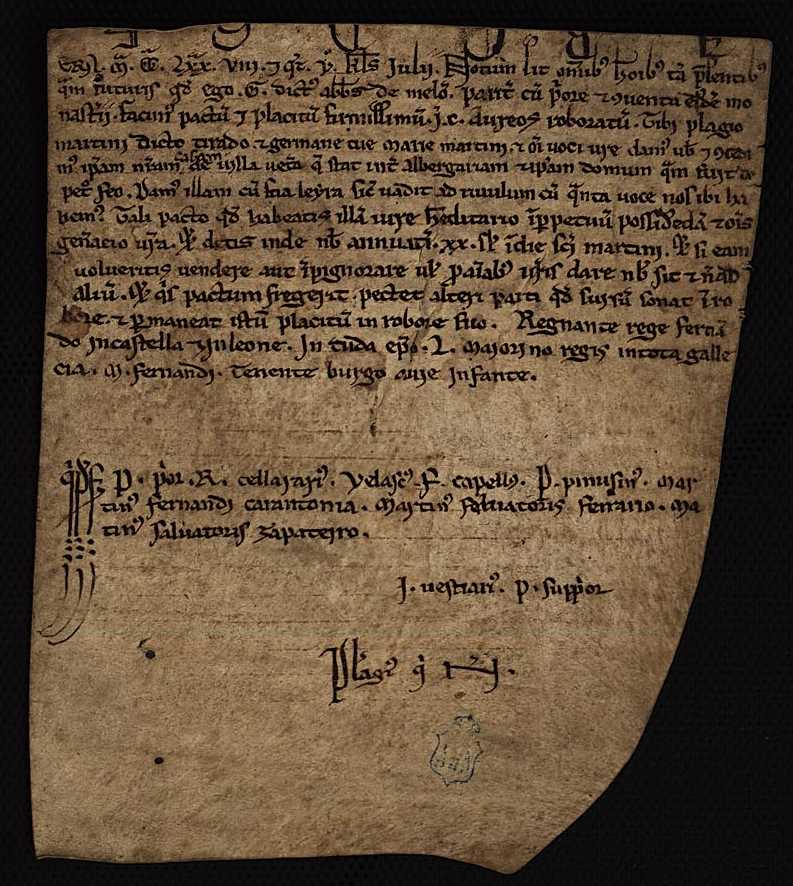 Era. Mª. CCª. LXXª. VIIIª. ⁊ qͦt. Vº. kl̄s Julii. Notum sit om̄ib⁹ hoı̄b⁹ tā p̄sentib⁹
q̄m futuris qd̄ ego. G. dict⁹ abb̄s de melō. parit̄ cū p̄ore ⁊ ꝯuentu eı⁹dē mo
nast̄ii. facim⁹ pactū ⁊ placitū firmissimū. ī. c. aureos roboratū. Tibi plagio
martini dicto tirado ⁊ germane tue marie martini. ⁊ oī uoci ure dam⁹ ub̄ ⁊ ꝯcedi
m⁹ ip̄am nr̄am casam de uilla uet̄a q̄ stat int̄ albergariam ⁊ ip̄am domum q̄m fuit
pet̄ feo. Dam⁹ illam cū sua leyra sic̄ uadit ad riuulum cū q̄nta uoce nos ibi ha
bem⁹. Tali pacto qd̄ habeatis illā iure h̄editario īp̄petuū possidēdā ⁊ oīs
gen̄acio ur̄a. ⁊ detis inde nb̄ annuatī. xx. sl̄ ī die sc̄i martini. ⁊ si eam
uolueritis uendere aut īpignorare ul̄ dare nb̄ sit ⁊ n̄ ad
aliū. ⁊ q̄s pactum fregerit. pectet alteri parti qd̄ sursū sonat ī ro
bore. ⁊ p̄maneat istū placitū in robore suo. Regnante rege fernā
do in castella ⁊ in leone. In tuda ep̄o. L. maiorino regis in tota galle
cia. M. fernandi. Tenente burgo aije infante.
P. p̄or. R. cellarari⁹. Velasc⁹. F. capell⁹. P. pinusin⁹. mar
tin⁹ fernandi carantonia. Martin⁹ saluatoris ferrario. Ma
tin⁹ saluatoris zapateiro.
J. uestiari⁹. P. supp̄or
Pelagi⁹ q̄ N.